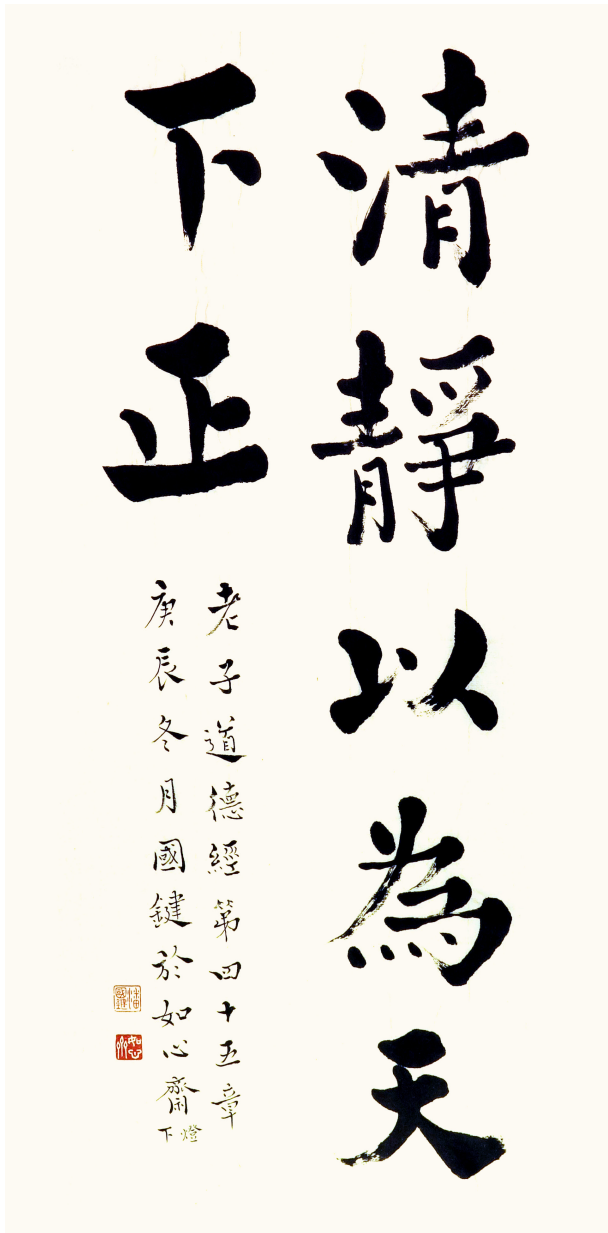 清靜以為天
下正
老子道德經第四十五章
庚辰冬月國鍵於如心齋燈下